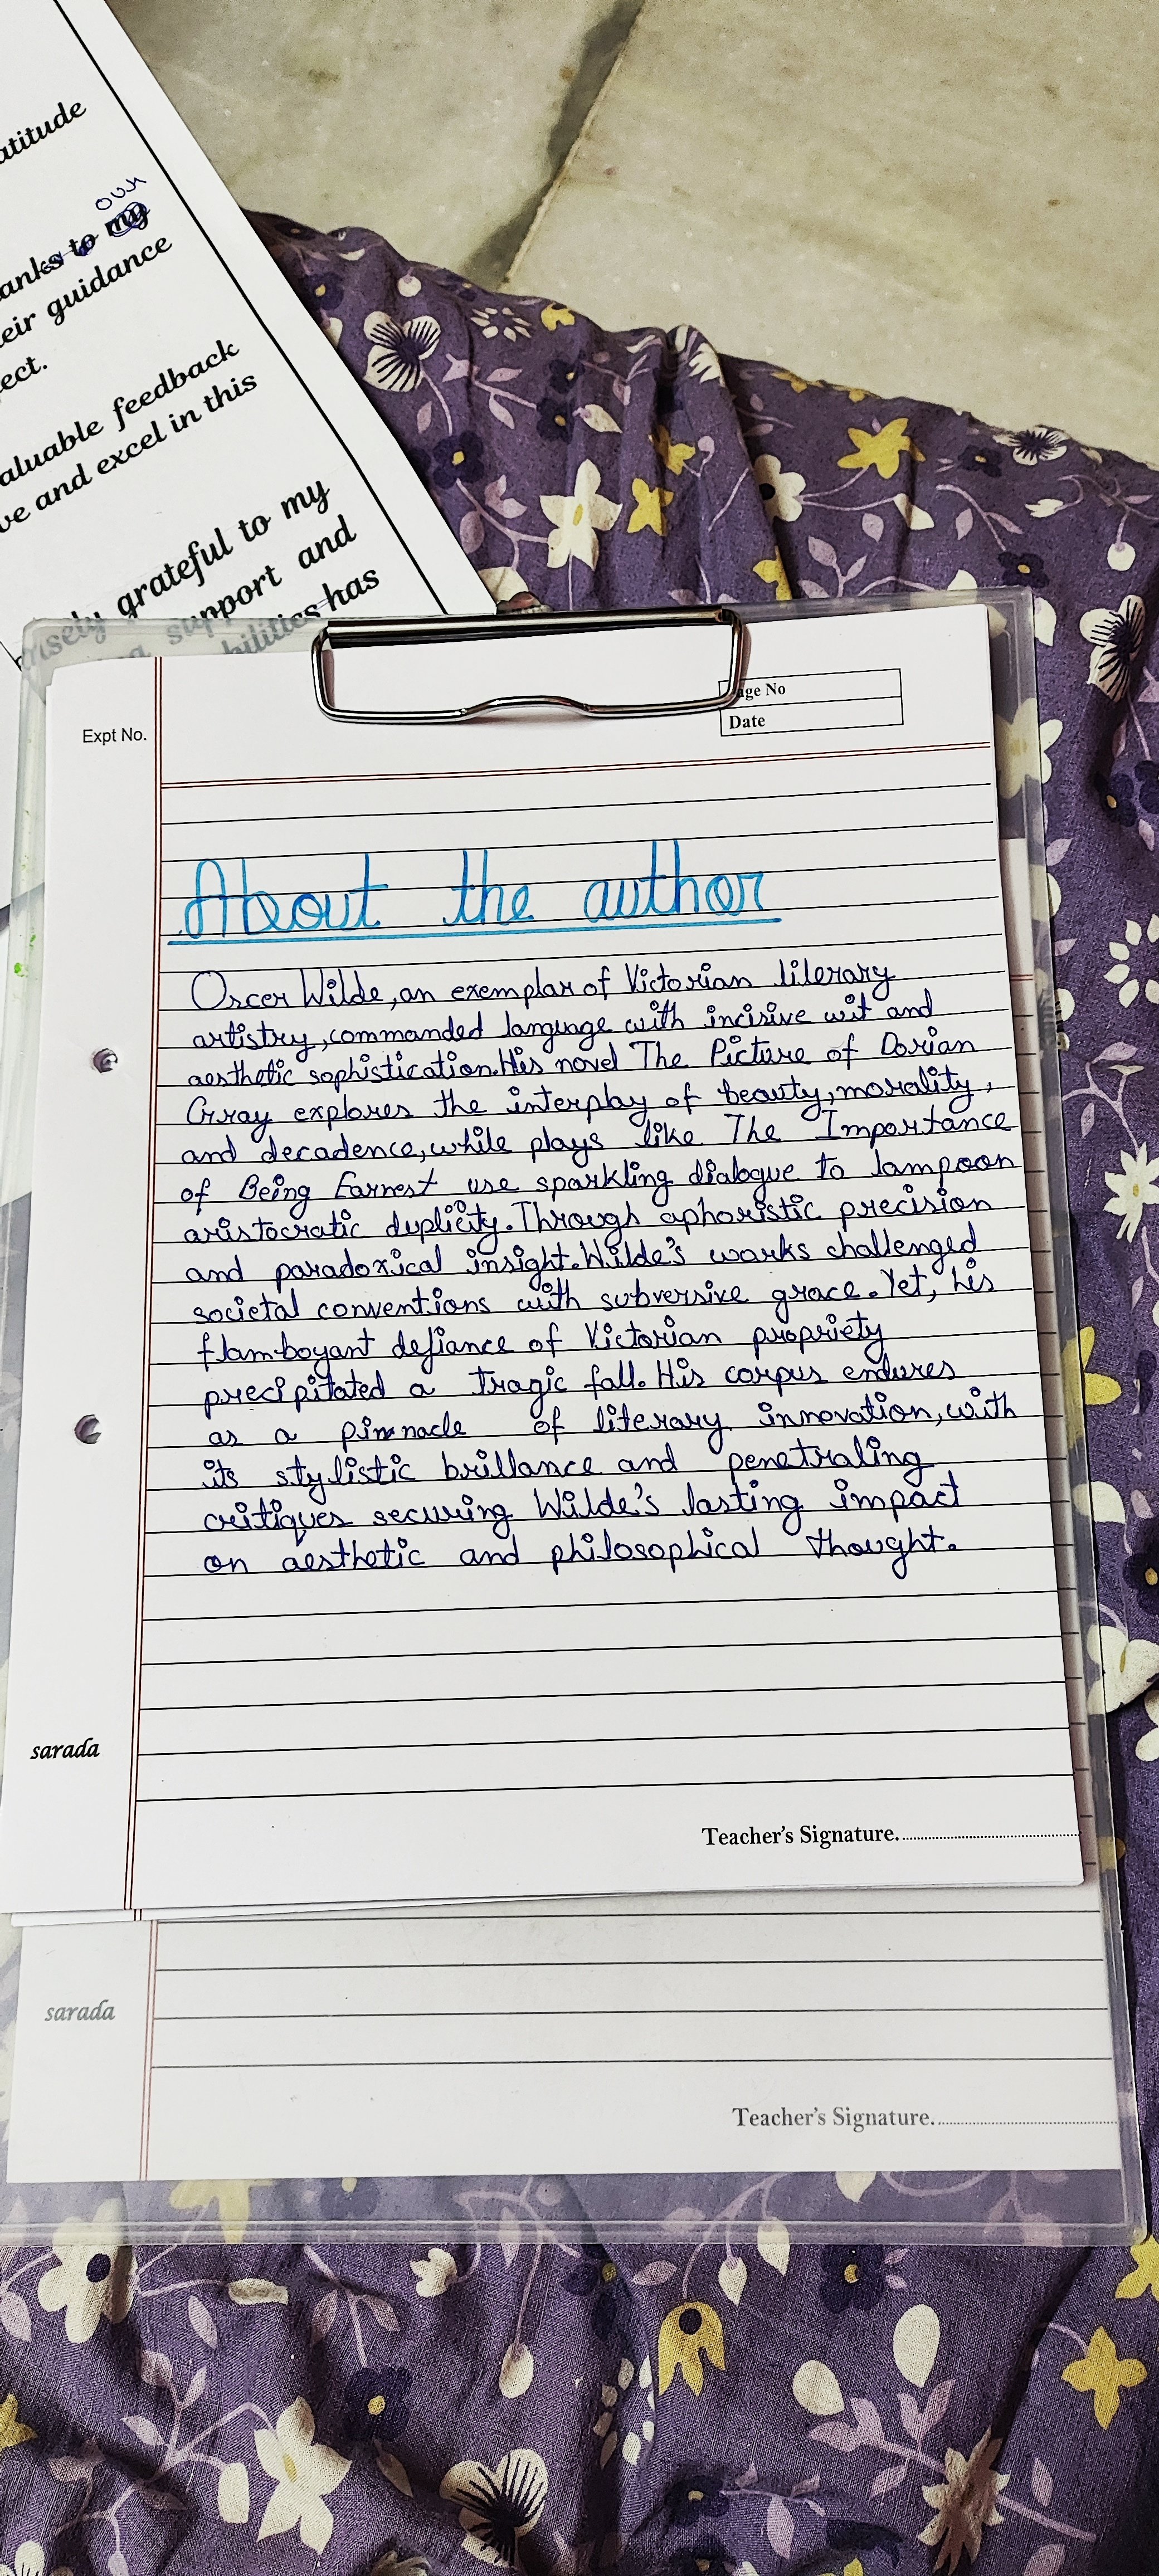 atitude
our
anks to my
eir guidance
ect.
aluable feedback
ve and excel in this
nsely grateful to my
support and
bilities has
age No
Date
Expt No.
About the author
Oscer Wilde, an exemplar of Victorian literary
artistry, commanded language with incisive wit and
aesthetic sophistication. His novel The Picture of Dorian
Gray explores the interplay of beauty, morality,
and decadence, while plays like The Importance
of Being Earnest use sparkling dialogue to lampoon
aristocratic duplicity. Through aphoristic precision
and paradoxical insight. Wilde's works challenged
societal conventions with subversive grace. Yet, his
flamboyant defiance of Victorian propriety
precipitated a tragic fall. His corpus endures
as a pinnacle of literary innovation, with
its stylistic brillance and penetraling
critiques securing Wilde's lasting impact
on aesthetic and philosophical thought.
sarada
Teacher's Signature.
sarada
Teacher's Signature.